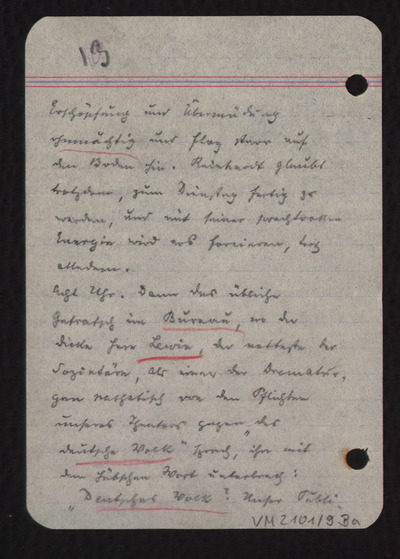 19
Erschöpfung und Übermüdung
ohnmächtig und flog starr auf
den Boden hin. Reinhardt glaubt
trotzdem, zum Dienstag fertig zu
werden, und mit seiner prachtvollen
Energie wird ers forcieren, trotz
alledem.
Acht Uhr. Dann das übliche
Getratsch im Bureau, wo der
dicke Herr Lewin, der netteste der
Sozietäre, als einer der Drematur,
gen pathetisch von den Pflichten
unseres Theaters gegen „das
deutsche Volk" sprach, ihn mit
dem hübschen Wort unterbrach:
„Deutsches Volk? Unser Publi,
VM 2101/9 Ba